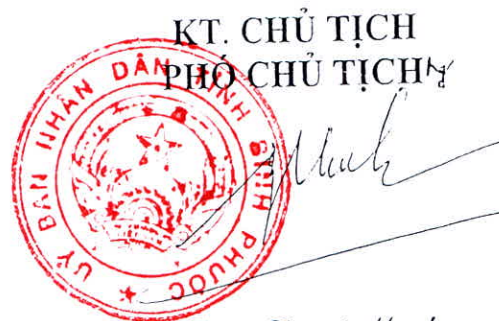 KT. CHỦ TỊCH
PHÓ CHỦ TỊCH
ỦY BAN NHÂN DÂN TỈNH BÌNH PHƯỚC